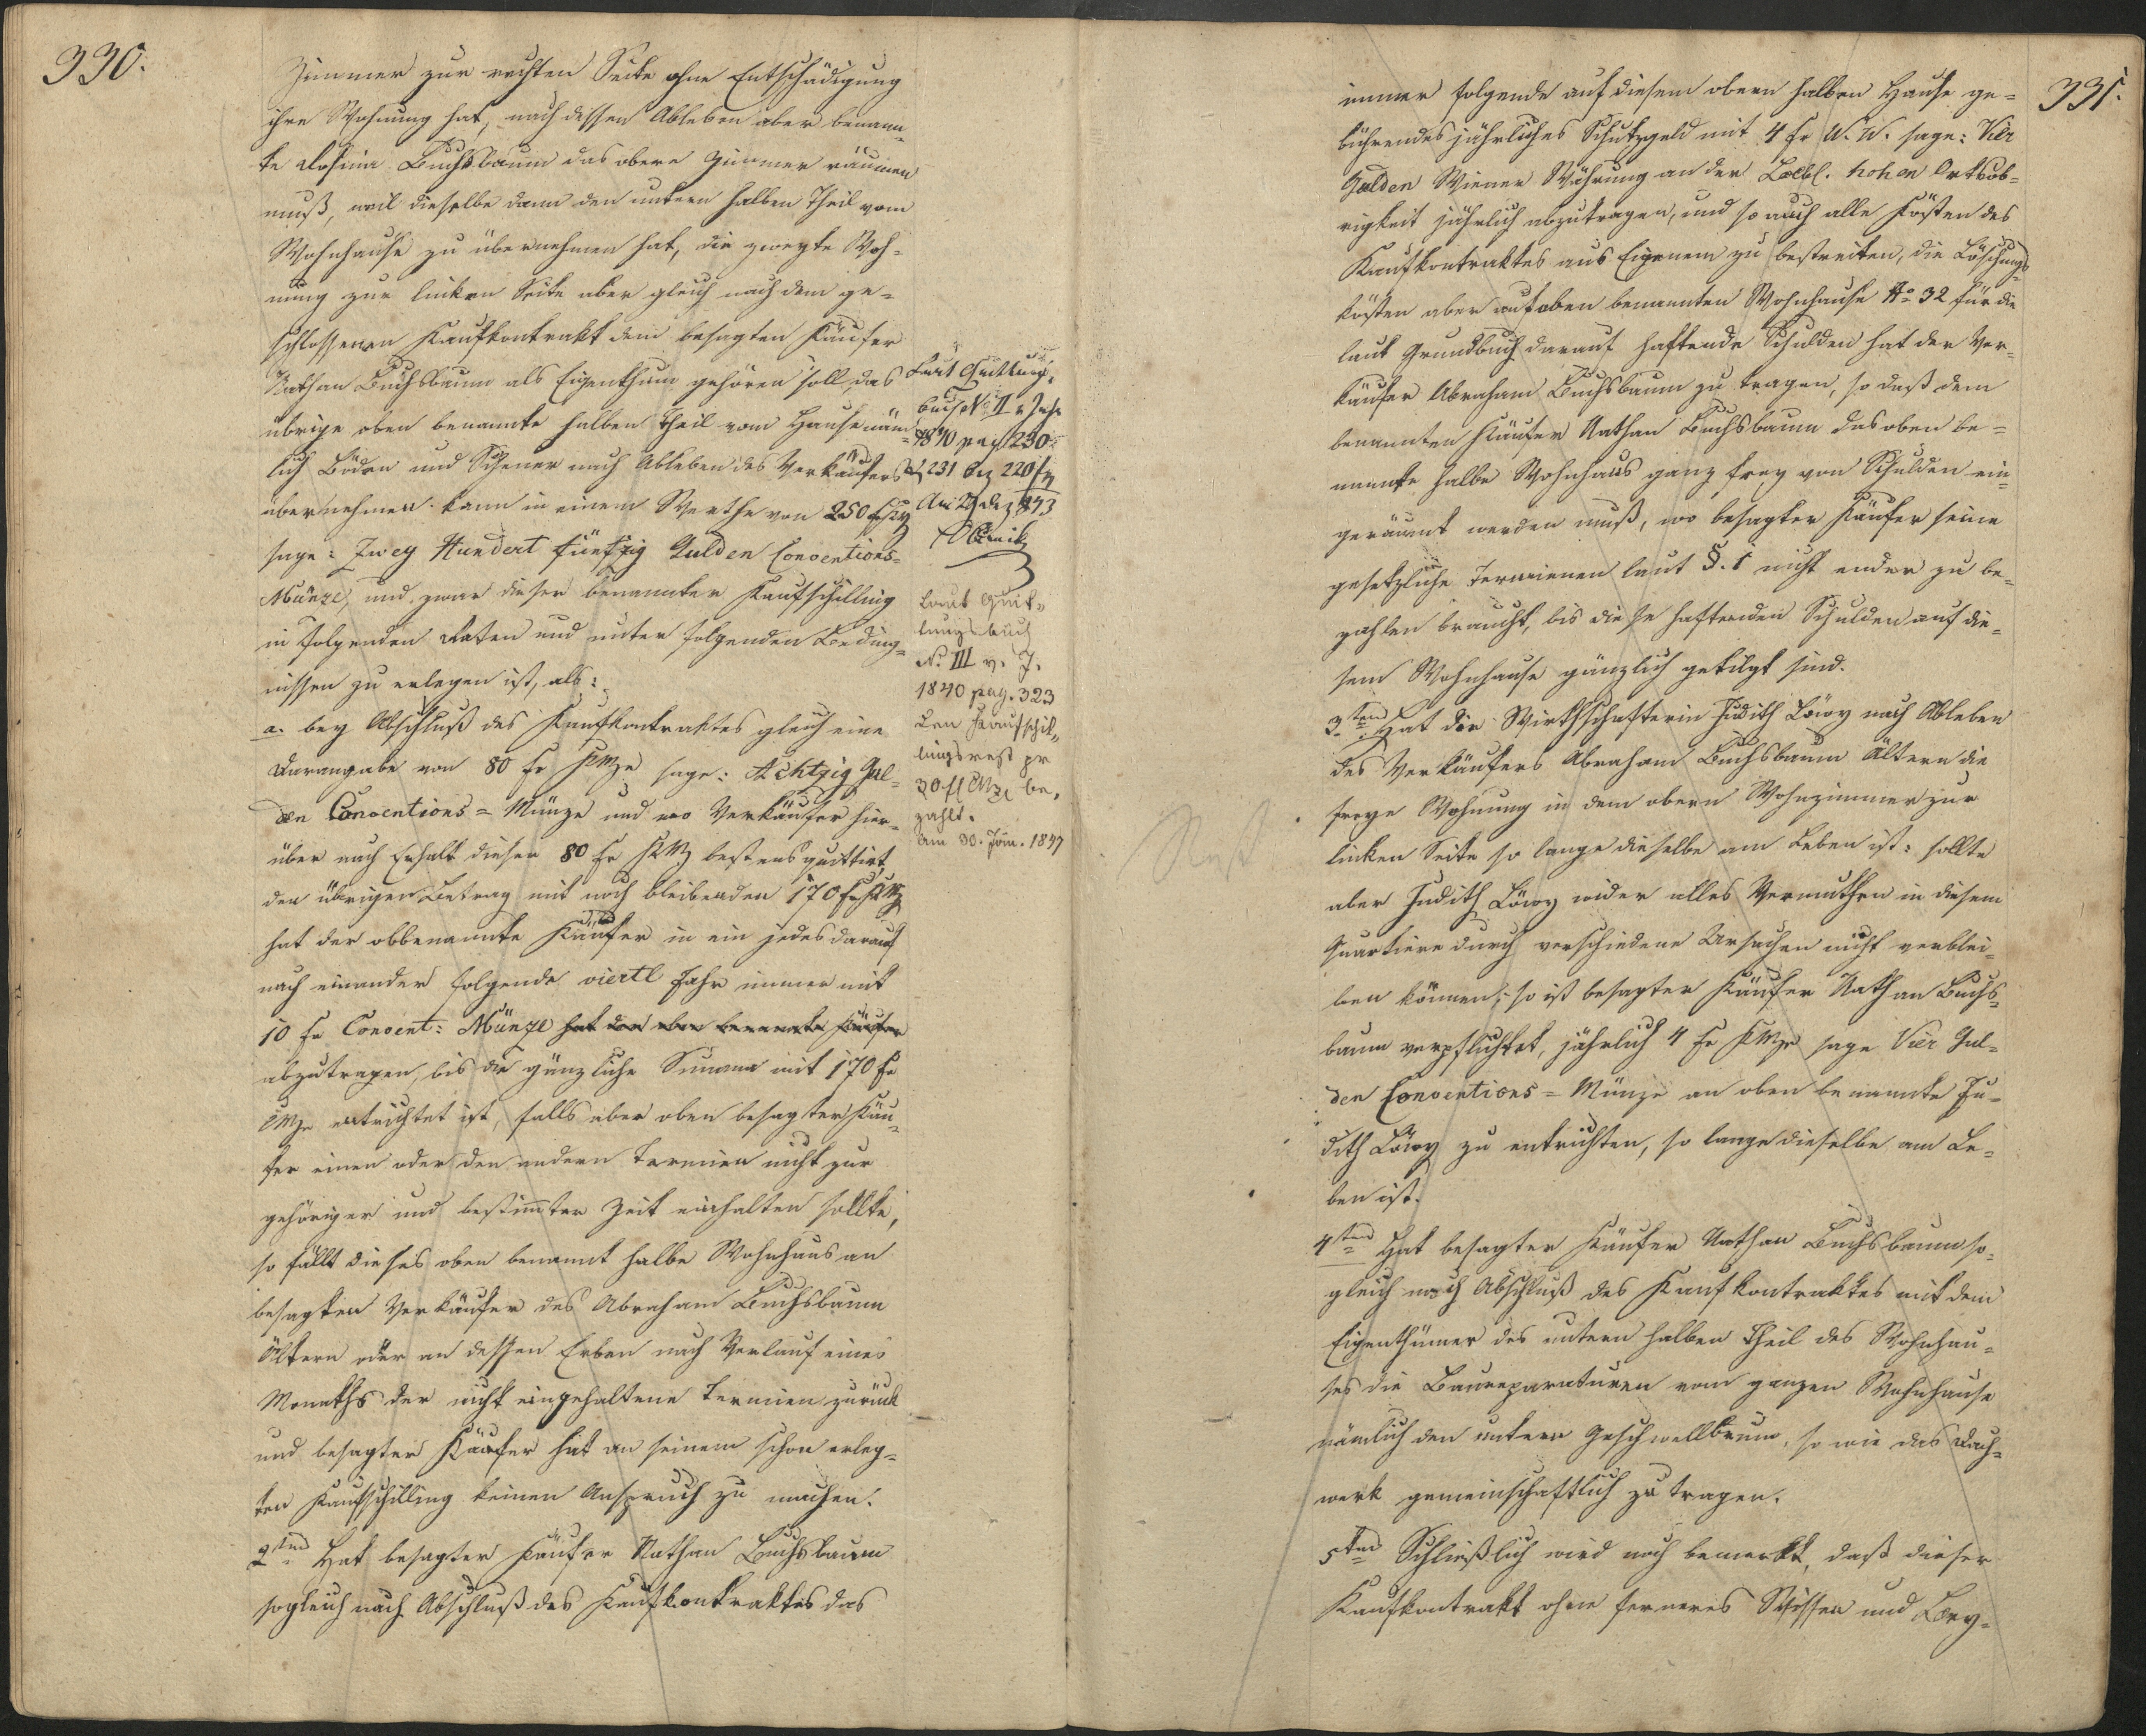 330.
Zimmer zur rechten Seite ohne Entschädigung
ihre Wohnung hat, nach dessen Ableben aber benann-
te Rosina Buchsbaum das obere Zimmer räumen
muß, weil dieselbe dann den untern halben Theil vom
Wohnhause zu übernehmen hat, die zweyte Woh-
nung zur linken Seite aber gleich nach dem ge-
schlossenen Kaufkontrakt dem besagten Käufer
Nathan Buchsbaum als Eigenthum gehören soll, das
übrige oben benannte halben Theil vom Hause näm-
lich Böden und Scheuer nach Ableben des Verkäufers
übernehmen kann in einem Werthe von 250 f
sage: Zwey Hundert fünfzig Gulden Conventions-
Münze, und zwar dieser benannter Kaufschilling
in folgenden Raten und unter folgenden Beding-
nissen zu erlegen ist, als:
a. bey Abschluß des Kaufkontraktes gleich eine
Darangabe von 80 fr sage: Achtzig Gul-
den Conventions-Münze und wo Verkäufer hier-
über nach Erhalt dieser 80 fr bestens quittirt,
den übrigen Betrag mit noch bleibenden 170 f
hat der obbenannte Käufer in ein jedes darauf
nach einander folgende viertl Jahr immer mit
10 fr Convent: Münze hat der oben benannte Käufer
abzutragen, bis die gänzliche Summa mit 170 fr
CMze entrichtet ist, falls aber oben besagter Käu-
fer einen oder den andern Termien nicht zur
gehöriger und bestimmter Zeit einhalten sollte,
so fällt dieses oben benannt halbe Wohnhaus an
besagten Verkäufer des Abraham Buchsbaum
Ältern oder an dessen Erben nach Verlauf eines
Monaths der nicht eingehaltene Termien zurück
und besagter Käufer hat an seinem schon erleg-
ten Kaufschilling keinen Anspruch zu machen.
2tens Hat besagter Käufer Nathan Buchsbaum
sogleich nach Abschluß des Kaufkontraktes das
Laut Quittungs-
buch No II v Jahr
1840 pag 230
231 220 f
1843
Laut Quit-
tungsbuch
No. III v. J.
1840 pag. 323
den Kaufschil-
lingsrest pr
30 fl CMz be-
zahlt.
am 30. Jun. 1847
331.
immer folgende auf diesem obern halben Hause ge-
bührendes jährliches Schutzgeld mit 4 fr W. W. sage: Vier
Gulden Wiener Währung an der Löbl. hohen Ortsob-
rigkeit jährlich abzutragen, und so auch alle Kösten des
Kaufkontraktes aus Eigenem zu bestreiten, die Löschungs-
kösten aber auf oben benannten Wohnhause No 32 für die
laut Grundbuch darauf haftende Schulden hat der Ver-
käufer Abraham Buchsbaum zu tragen, so daß dem
benannten Käufer Nathan Buchsbaum das oben be-
nannte halbe Wohnhaus ganz frey von Schulden ein-
geräumt werden muß, wo besagter Käufer seine
gesetzliche Termienen laut §. 1 nicht ender zu be-
zahlen braucht, bis diese haftenden Schulden auf die-
sem Wohnhause gänzlich getilgt sind.
3tens Hat die Wirthschafterin Judith Löwy nach Ableben
des Verkäufers Abraham Buchsbaum Ältern die
freye Wohnung in dem obern Wohnzimmer zur
linken Seite so lange dieselbe am Leben ist: sollte
aber Judith Löwy wider alles Vermuthen in diesem
Quartiere durch verschiedene Ursachen nicht verblei-
ben können, so ist besagter Käufer Nathan Buchs-
baum verpflichtet, jährlich 4 fr sage Vier Gul-
den Conventions-Münze an oben benannte Ju-
dith Löwy zu entrichten, so lange dieselbe am Le-
ben ist.
4tens Hat besagter Käufer Nathan Buchsbaum so-
gleich nach Abschluß des Kaufkontraktes mit dem
Eigenthümer des untern halben Theil des Wohnhau-
ses die Baureparaturen vom ganzen Wohnhause
nämlich den untern Geschwellbaum, so wie das Dach-
werk gemeinschaftlich zu tragen.
5tens Schließlich wird noch bemerkt, daß dieser
Kaufkontrakt ohne ferneres Wissen und Bey-